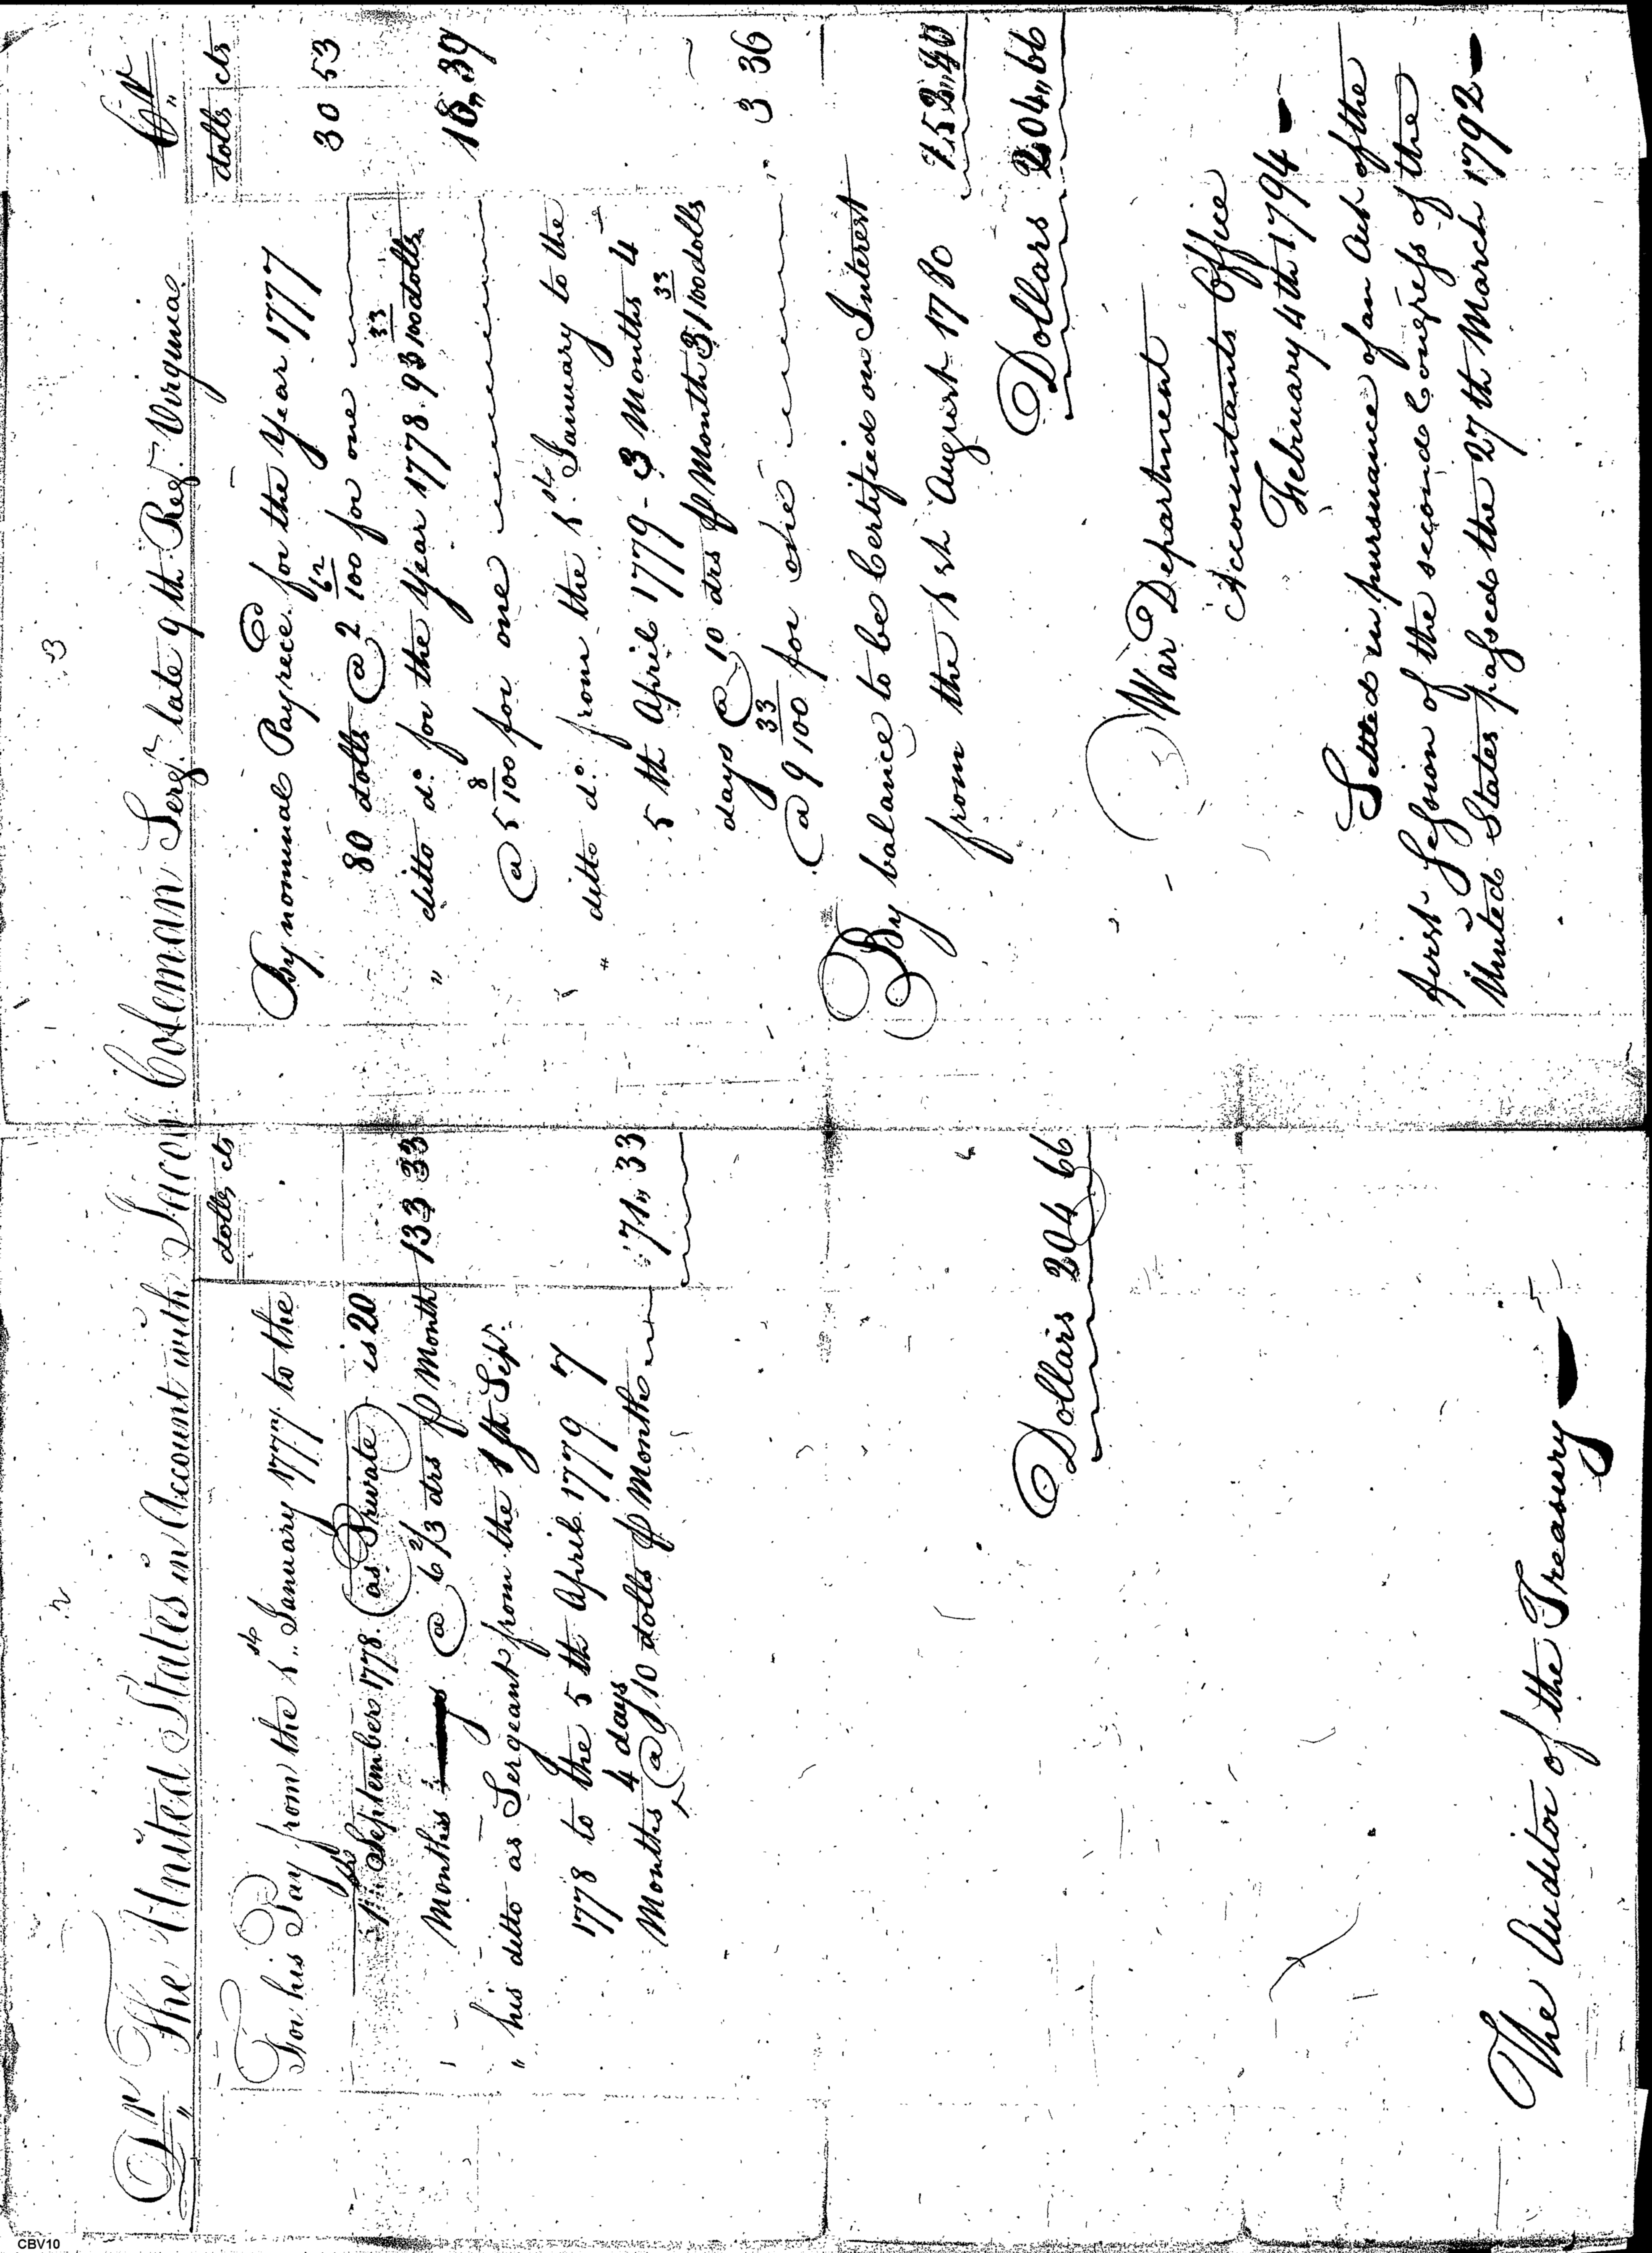 2
3
Dr The United States in Account with Jacob Coleman Sergt. late 9th. Reg. Virginia. Cr
dolls cts
For his Pay from the 1st January 1777 to the
1st September 1778. (as Private) is 20
Months @ 6 2/3 drs p Month 133 33
" his ditto as Sergeant from the 1st Sepr.
1778 to the 5th April 1779 7
Months 4 days @ 10 dolls p Month 71,, 33
Dollars 204 66
The Auditor of the Treasury
dolls cts
By nominal Pay recd. for the Year 1777
80 dolls @ 2 62/100 for one 30 53
" ditto do. for the Year 1778. 93 33/100 dolls
@ 5 8/100 for one 18,, 37
" ditto do. from the 1st. January to the
5th April 1779 - 3 Months 4
days @ 10 drs p Month 31 33/100 dolls
@ 9 33/100 for one 3 36
By balance to be Certified on Interest
from the 1st August 1780 152,, 40
Dollars 204,, 66
War Department
Accountants Office
February 4th 1794
Settled in pursuance of an Act of the
first Session of the second Congress of the
United States passed the 27th March 1792
CBV10